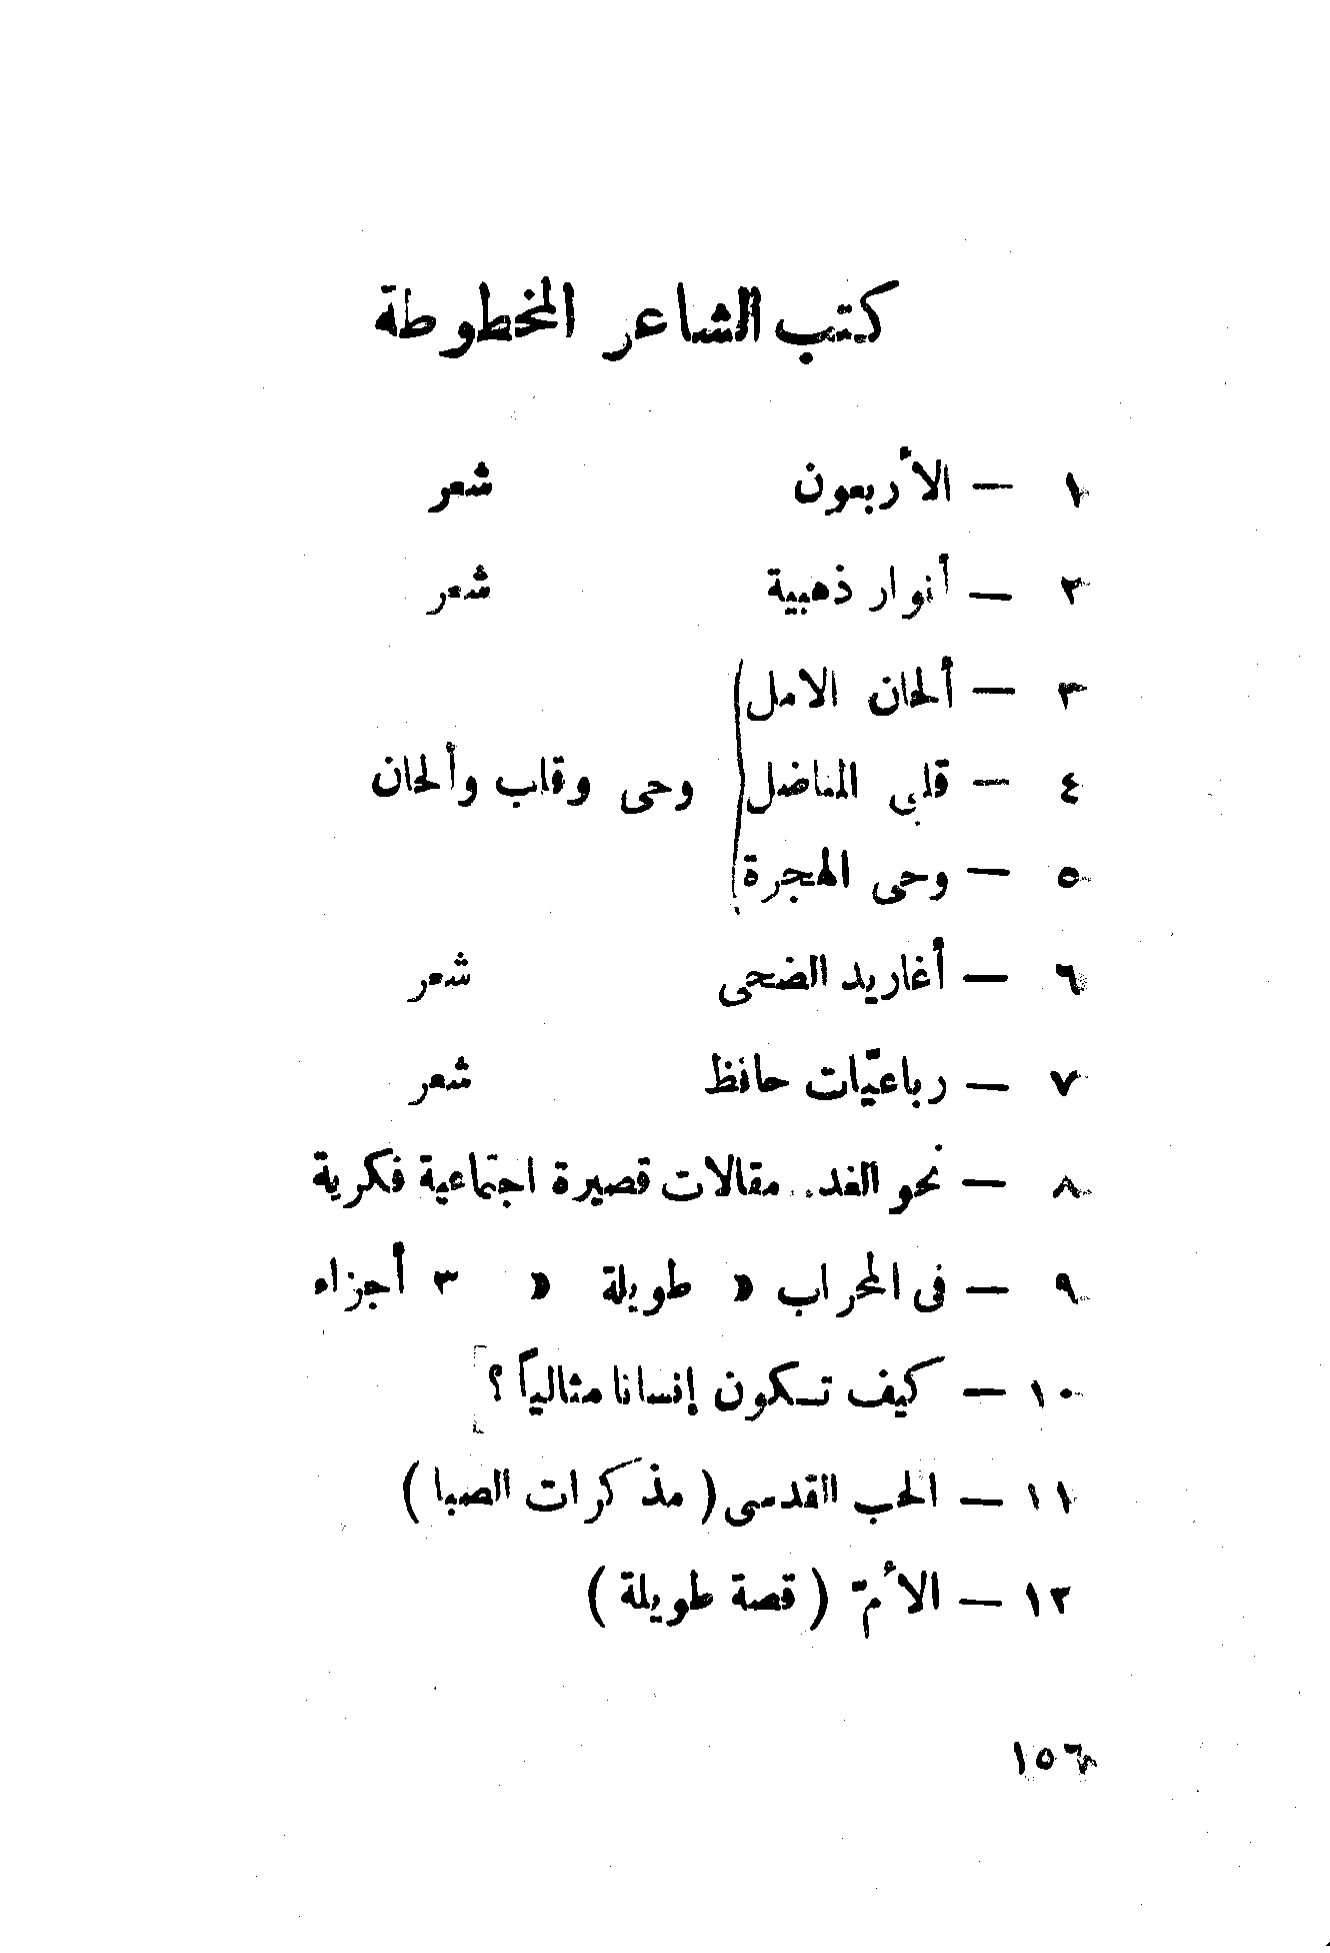 كتب الشاعر المخطوطة
١ — الأربعون شعر
٢ — أنوار ذهبية شعر
٣ — ألحان الامل
٤ — قلبي المناضل وحى وقلب وألحان
٥ — وحى الهجرة
٦ — أغاريد الضحى شعر
٧ — رباعيّات حافظ شعر
٨ — نحو الغد.. مقالات قصيرة اجتماعية فكرية
٩ — فى المحراب « طويلة « ٣ أجزاء
١٠ — كيف تكون إنسانا مثالياً ؟
١١ — الحب القدسى ( مذكرات الصبا )
١٢ — الأمّ ( قصة طويلة )
١٥٦